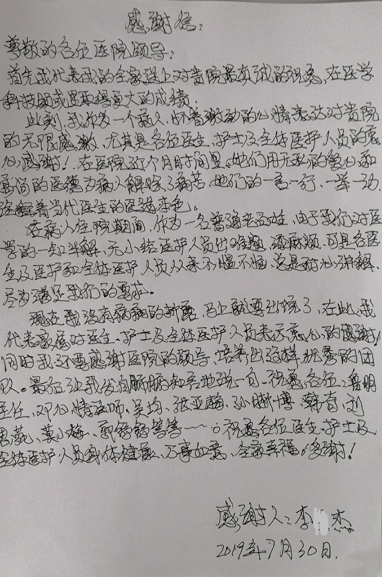 感谢信：
尊敬的各位医院领导：
首先我代表我的全家送上对贵院最真诚的祝愿，在医学
科技领域里取得更大的成绩。
此刻，我作为一个病人，怀着激动的心情表达对贵院
的无限感激，尤其是各位医生、护士及全体医护人员的衷
心感谢！在医院近个月时间里，她们用无私的爱心和
高尚的医德为病人解除了痛苦，她们的一言一行，一举一动
在病人住院期间，作为一名普通老百姓，由于我们对医
学的一知半解，无小给医护人员出难题，添麻烦，可是各医
生及医护和全体医护人员从来不愠不恼总是耐心讲解，
尽力满足我们的要求。
现在我没有病痛的折磨，马上就要出院了，在此，我
代表家属对医生、护士及全体医护人员表示衷心的感谢，
同时我还要感谢医院的领导，培养出这样优秀的团
队。最后让我发自肺腑地说一句，祝愿各位：
主任，邓心情医师，
祝愿各位医生、护士及
全体医护人员身体健康，万事如意，全家幸福。谢谢！
感谢人：李 杰
2019年7月30日.